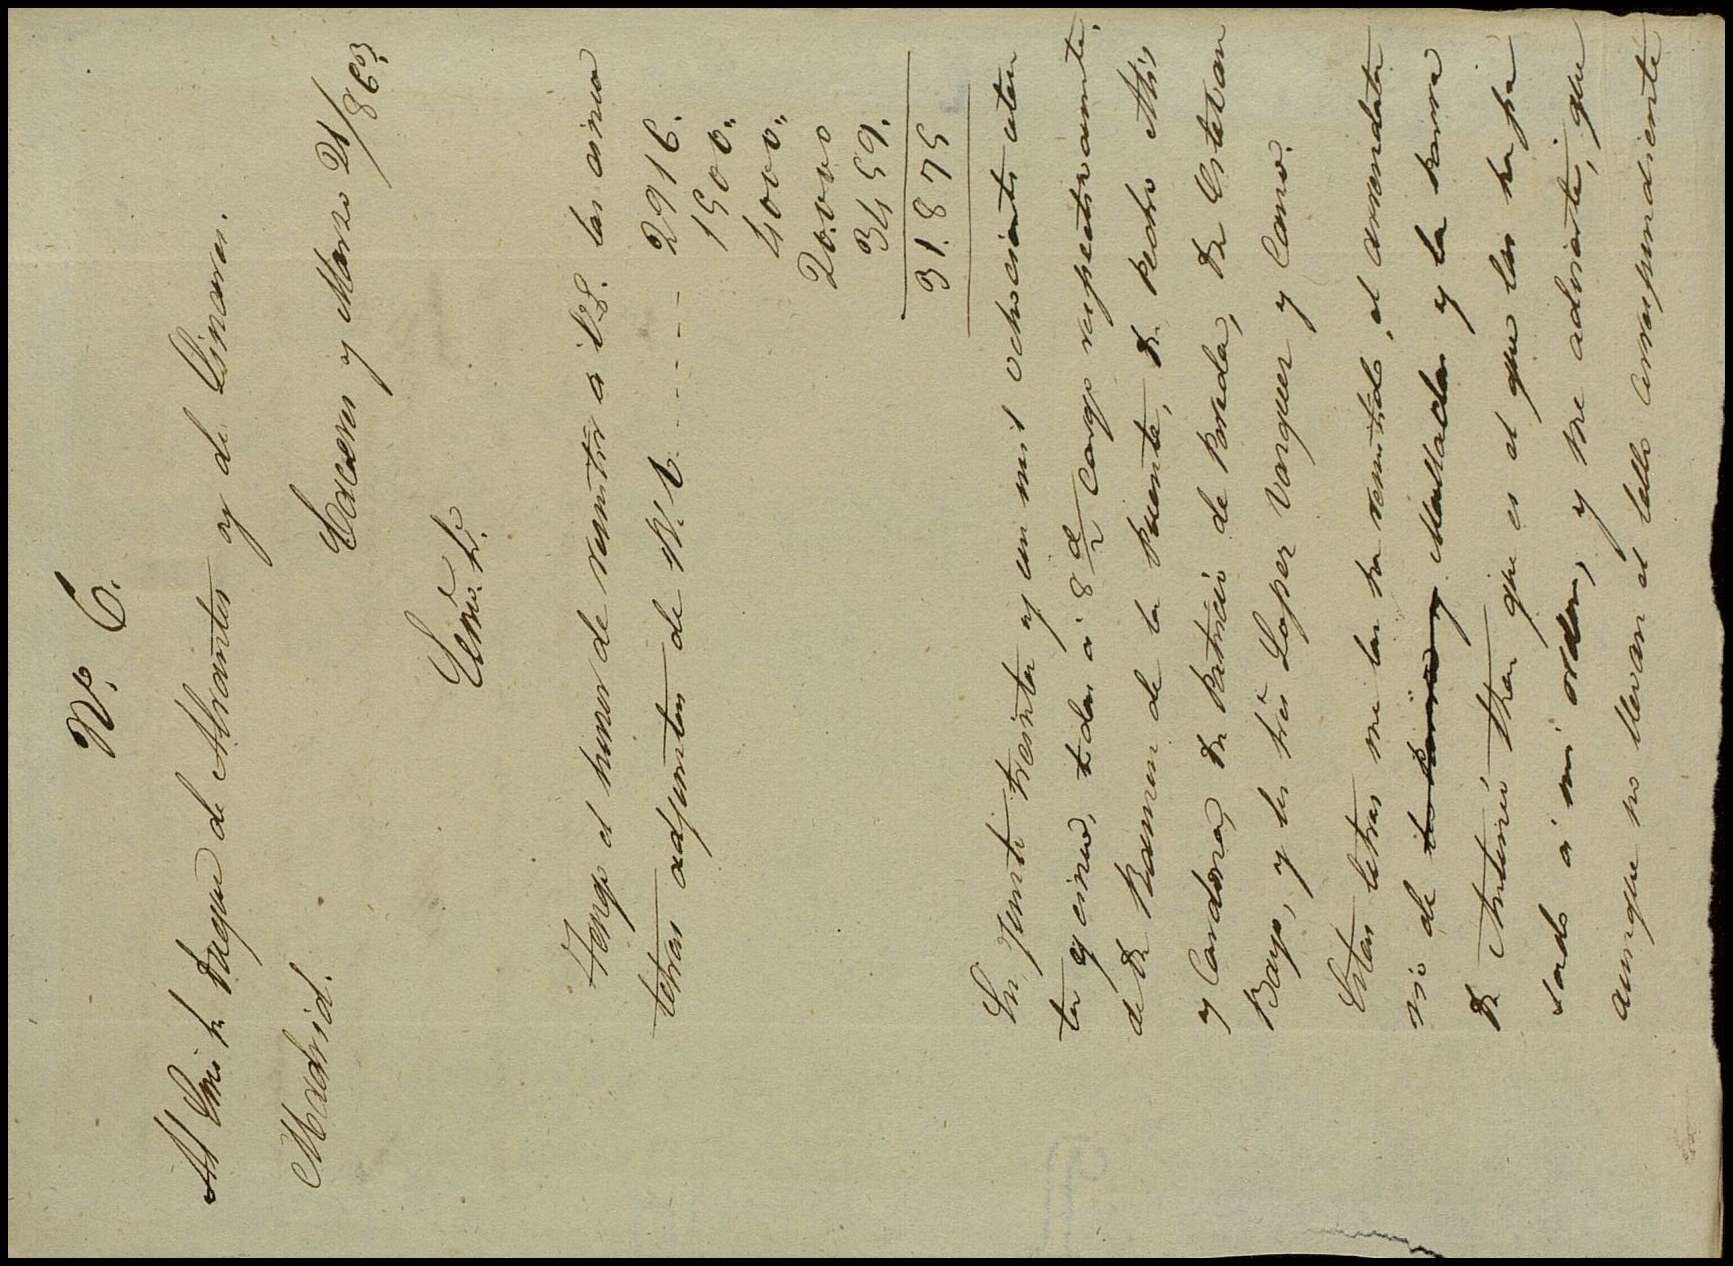 N.º 6.
Al Exmo Sr. Duque de Abrantes y de Linares.
Madrid.
Caceres y Marzo 21/863.
Exmo. Sr.
Tengo el honor de remitir á V.E. las cinco
letras adjuntas de R. V. - - - - - 2916.
1500.
4000.
20.000
3459.
31.875
En junto treinta y un mil ochocientos seten
ta y cinco, todas á 8 d/v cargo respectivamente,
de Dn Ramon de la Puente, Dn Pedro
y Cardona, Dn Patricio de Posada, Dn Estevan
Bayo, y los Sres Lopez Vazquez y Cano.
Estas letras me las ha remitido, el arrendata
rio de Malladas y la
Dn Antonio que es el que las ha
sado á mi orden, y me advierte, que
aunque no llevan el sello correspondiente